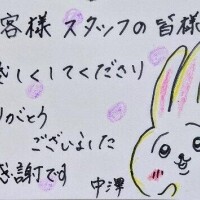 客様 スタッフの皆様
しくしてくださり
りがとう
ございました
感謝です
中澤